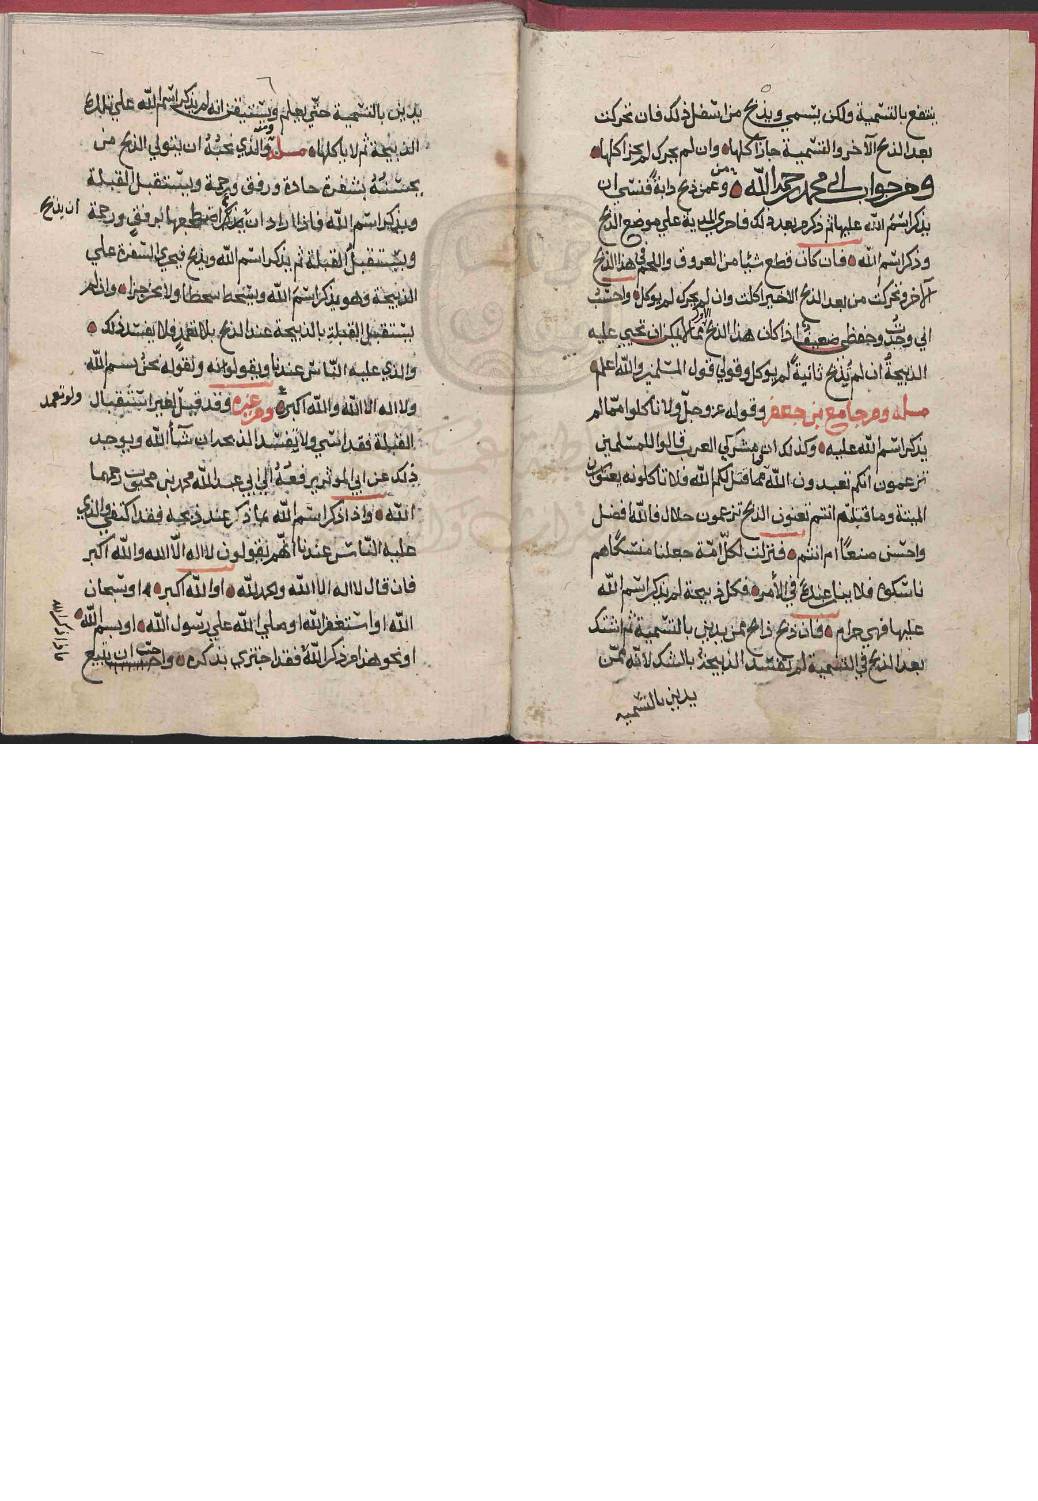 ٥
ينتفع بالتسمية ولكن يسمي ويذبح من اسفل ذلك فان تحركت
بعد الذبح الآخر والتسمية جاز اكلها وان لم يحرك لم يجز اكلها
ومن جواب ابي محمد رحمه الله وعن من ذبح دابة فنسي ان
يذكر اسم الله عليها ثم ذكر من بعد ذلك فاجرى المدية على موضع الذبح
وذكر اسم الله فان كان قطع شيئا من العروق واللحم في هذا الذبح
الآخر وتحركت من بعد الذبح الاخير اكلت وان لم يحرك لم يوكل واحسب
اني وجدت وحفظي ضعيف اذا كان هذا الذبح الاول مما لا يمكن ان تحيى عليه
الذبيحة ان لم تذبح ثانية لم يوكل وقولي قول المسلمين والله اعلم
مسلة ومن جامع بن جعفر وقوله عز وجل ولا تاكلوا مما لم
يذكر اسم الله عليه وكذلك ان مشركي العرب قالوا للمسلمين
تزعمون انكم تعبدون الله فما قتل لكم الله فلا تاكلونه يعنون
الميتة وما قتلتم انتم تعنون الذبح تزعمون حلال فالله افضل
واحسن صنعا ام انتم فنزلت لكل امة جعلنا منسكا هم
ناسكوه فلا ينازعنك في الأمر فكل ذبيحة لم يذكر اسم الله
عليها فهي حرام فان ذبح ذابح ممن يدين بالتسمية ثم اشتك
بعد الذبح في التسمية لم تفسد الذبيحة بالشك لانه ممن
يدين بالتسمية
٦
يدين بالتسمية حتى يعلم ويستيقن انه لم يذكر اسم الله على تلك
الذبيحة ثم لا ياكلها مسلة ومنه والذي نحبه ان يتولى الذبح من
يحسنه بشفرة حادة ورفق ورحمة ويستقبل القبلة
ويذكر اسم الله فاذا اراد ان يذبح اضطجعها برفق ورحمة
ان يذبح
ويستقبل القبلة ثم يذكر اسم الله ويذبح فيجري الشفرة على
الذبيحة وهو يذكر اسم الله ويسحط سحطا ولا يحز حزا وان لم
يستقبل القبلة بالذبيحة عند الذبح بلا تعمد فلا يفسد ذلك
والذي عليه الناس عندنا ويقولونه ونقوله نحن بسم الله
ولا اله الا الله والله اكبر ومن غيره وقد قيل لغير استقبال
ولو تعمد
القبلة فقد اسي ولا يفسد الذبح ان شاء الله ويوجد
ذلك عن ابي المؤثر يرفعه الى ابي عبدالله محمد بن محبوب رحمهما
الله واذا ذكر اسم الله بما ذكر عند ذبحه فقد اكتفى والذي
عليه الناس عندنا انهم يقولون لا اله الا الله والله اكبر
فان قال لا اله الا الله والحمد لله او الله اكبر او سبحان
الله او استغفر الله او صلى الله على رسول الله او بسم الله
او نحو هذا من ذكر الله فقد اجتزى بذكره واحب ان يتبع
ما ذا ذكر الله